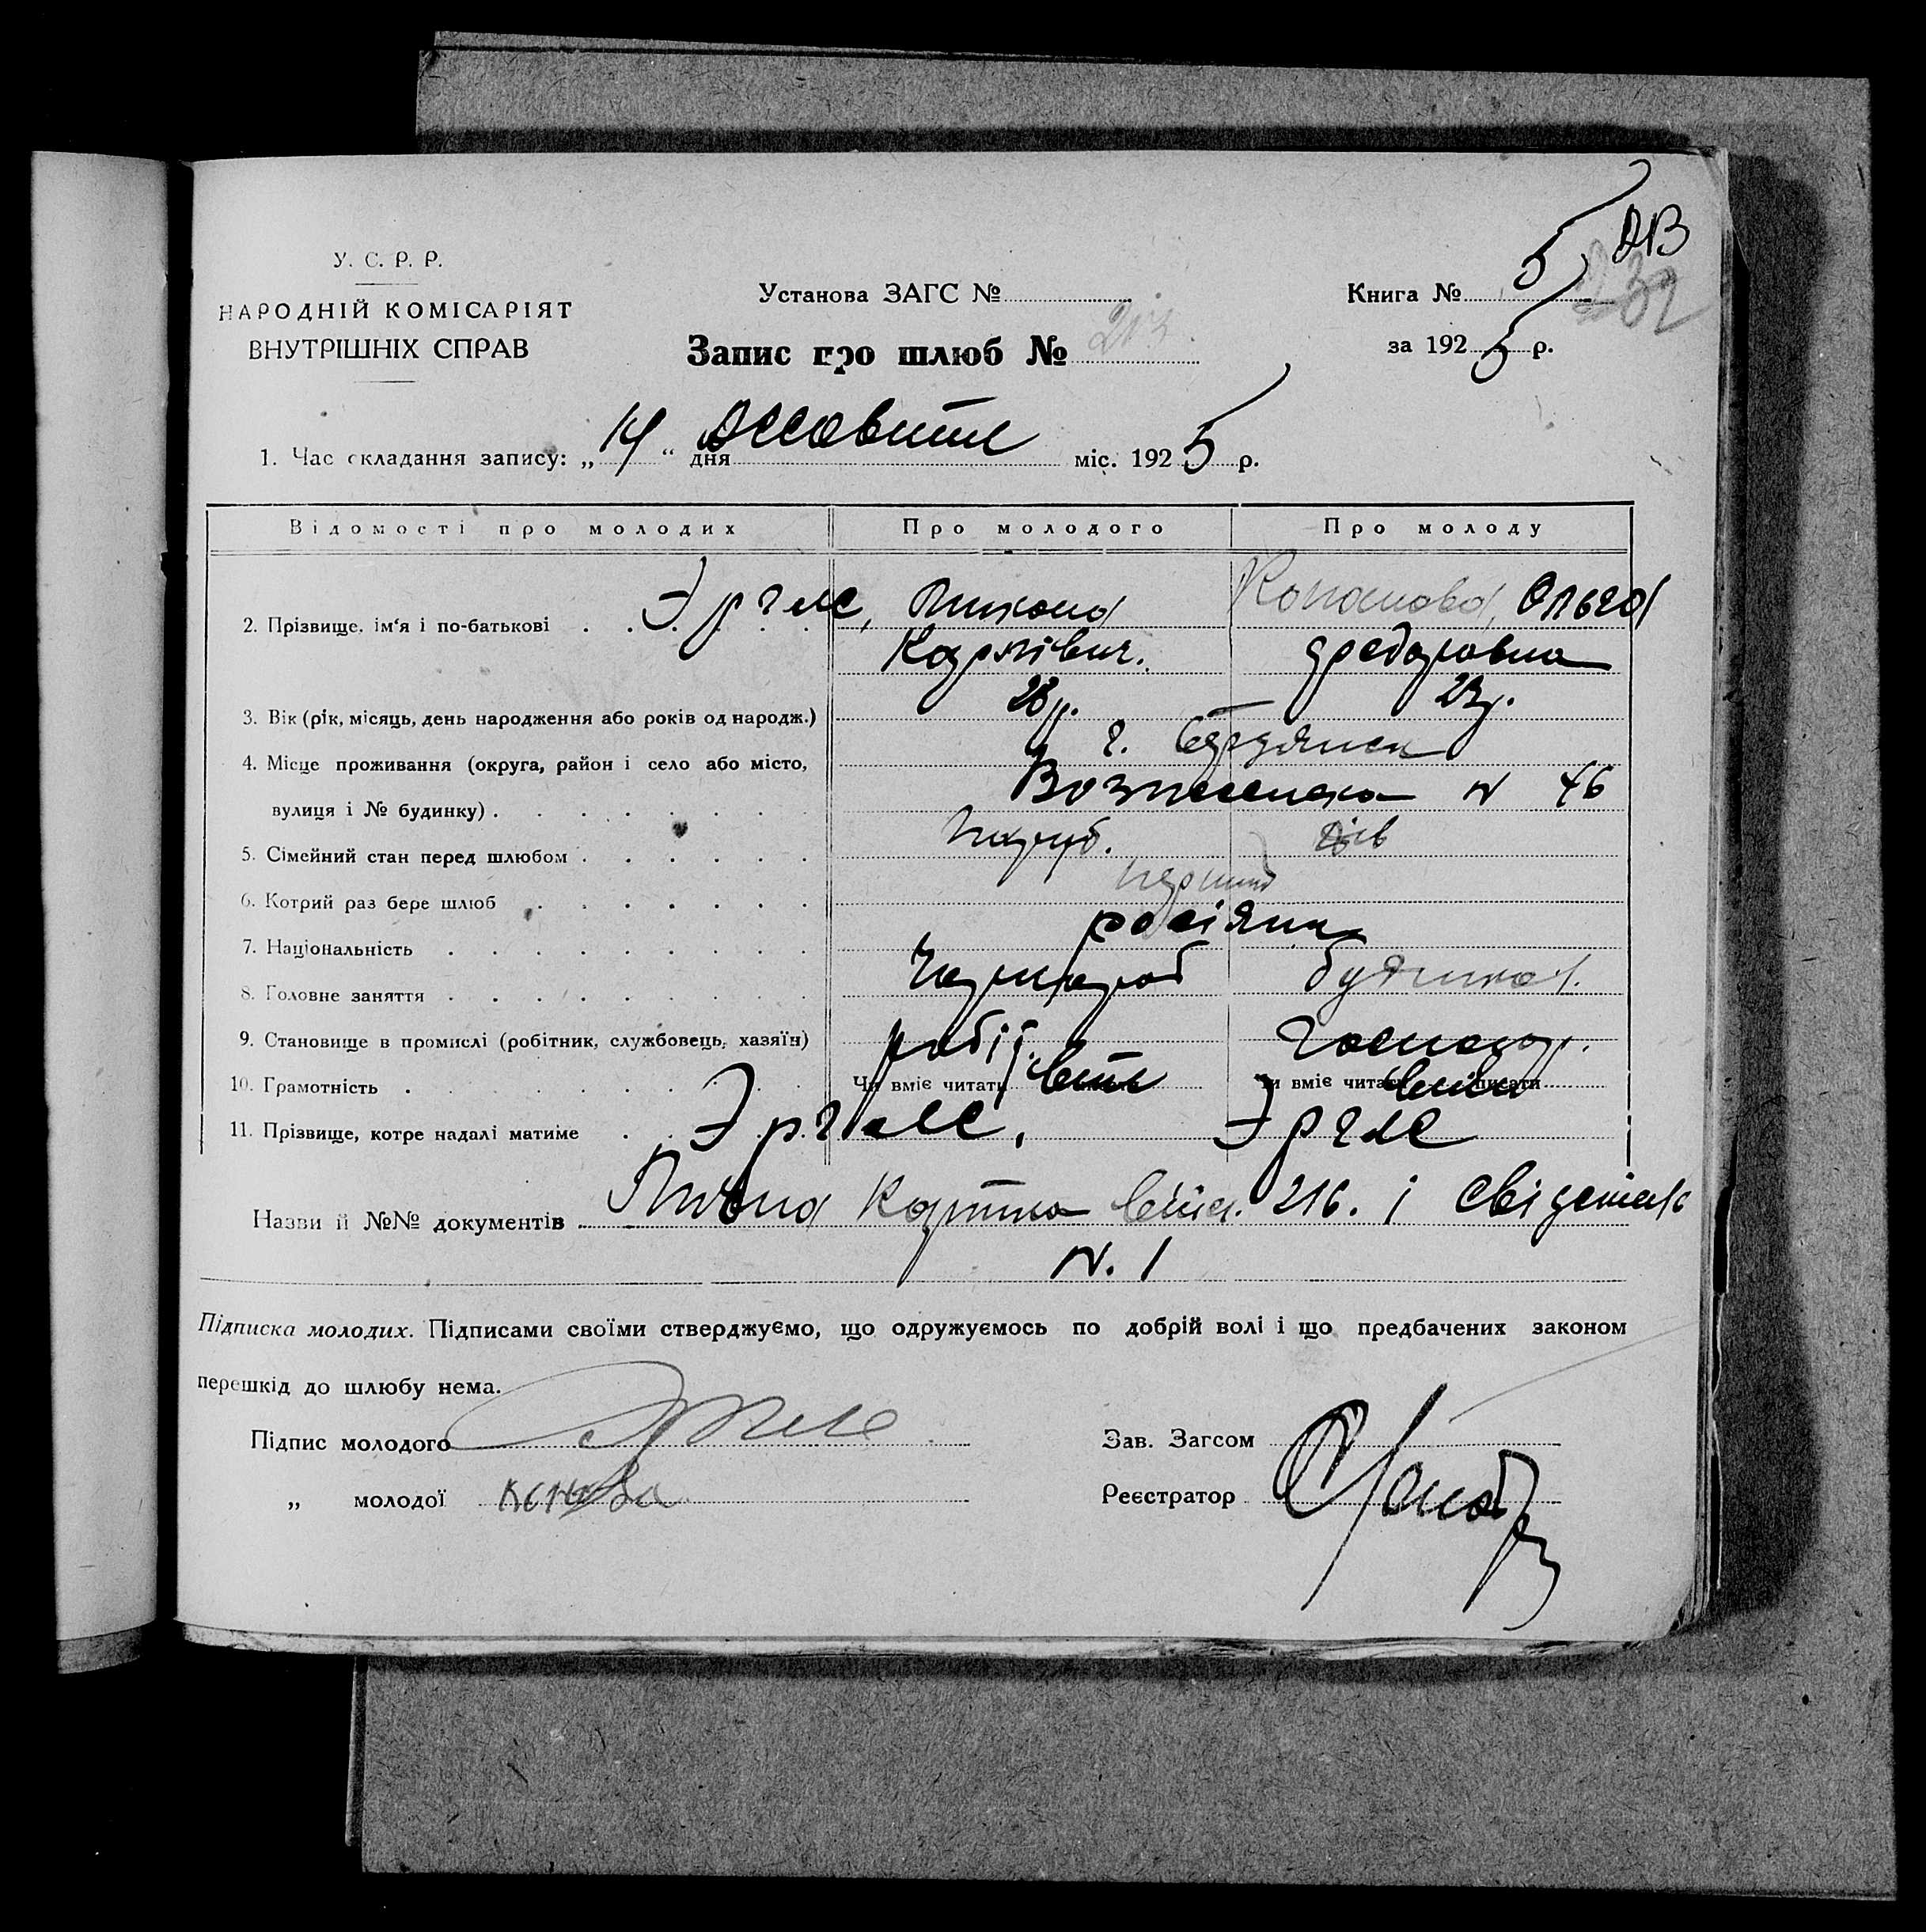 У. С. Р. Р.
НАРОДНІЙ КОМІСАРІЯТ
ВНУТРІШНІХ СПРАВ
Установа ЗАГС №
Запис про шлюб № 213.
Книга № 5
232
за 1925 р.
1. Час складання запису: „14“ дня міс. 1925 р.
Відомості про молодих Про молодого Про молоду
2. Прізвище, ім'я і по-батькові Эргле, Ольга
Карлівич. Федоровна
3. Вік (рік, місяць, день народження або років од народж.) 28 р. 23 р.
4. Місце проживання (округа, район і село або місто, г. Бердянск
вулиця і № будинку) Вознесенска N 46
5. Сімейний стан перед шлюбом Паруб. Дів
6. Котрий раз бере шлюб перший
7. Національність росіяни
8. Головне заняття
9. Становище в промислі (робітник, службовець, хазяїн) робіт. господар.
10. Грамотність Чи вміє читати Чи вміє читати писати
11. Прізвище, котре надалі матиме Эргле, Эргле
Назви й №№ документів Лична картка 216. і свідетель
N. 1
Підписка молодих. Підписами своїми стверджуємо, що одружуємось по добрій волі і що предбачених законом
перешкід до шлюбу нема.
Підпис молодого Эргле
Зав. Загсом
„ молодої
Реєстратор